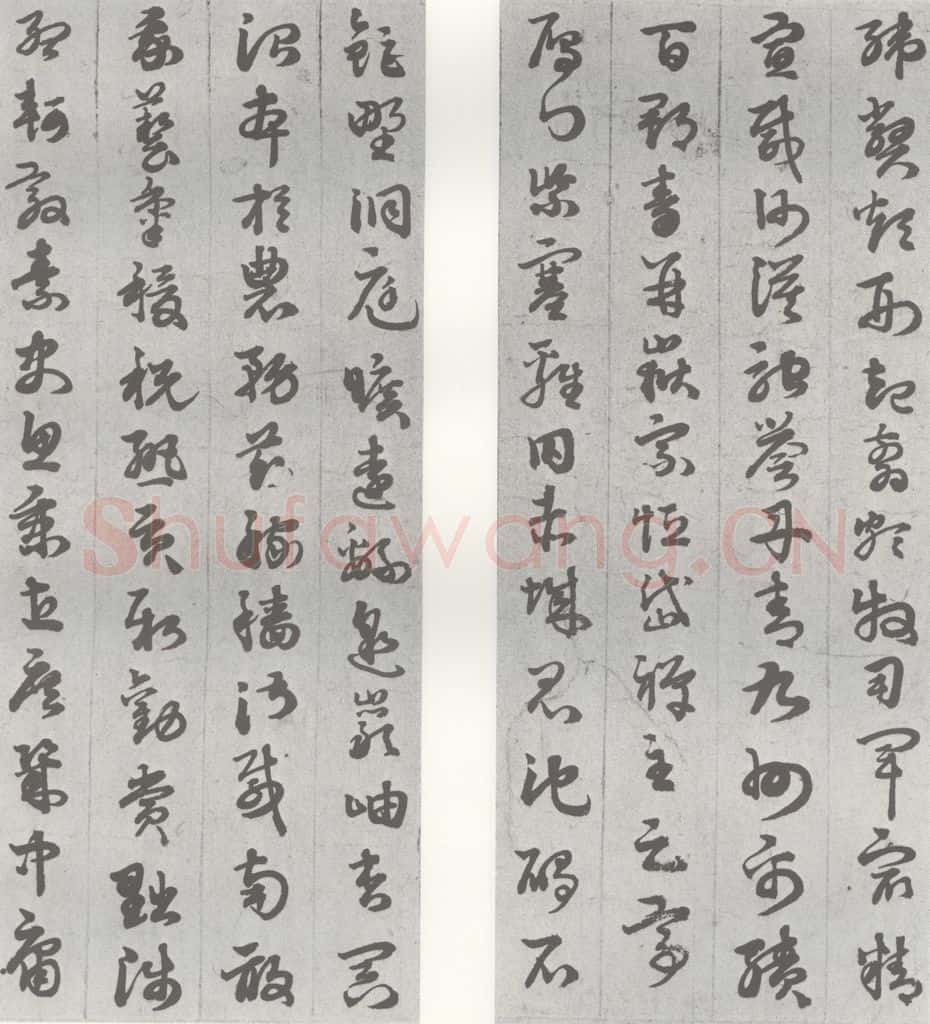 韓弊煩刑起翦頗牧用軍最精
宣威沙漠馳譽丹青九州禹蹟
百郡秦并嶽宗恆岱禪主云亭
雁門紫塞雞田赤城昆池碣石
鉅野洞庭曠遠綿邈巖岫杳冥
治本於農務茲稼穡俶載南畝
我藝黍稷稅熟貢新勸賞黜陟
孟軻敦素史魚秉直庶幾中庸
Shufawang.CN